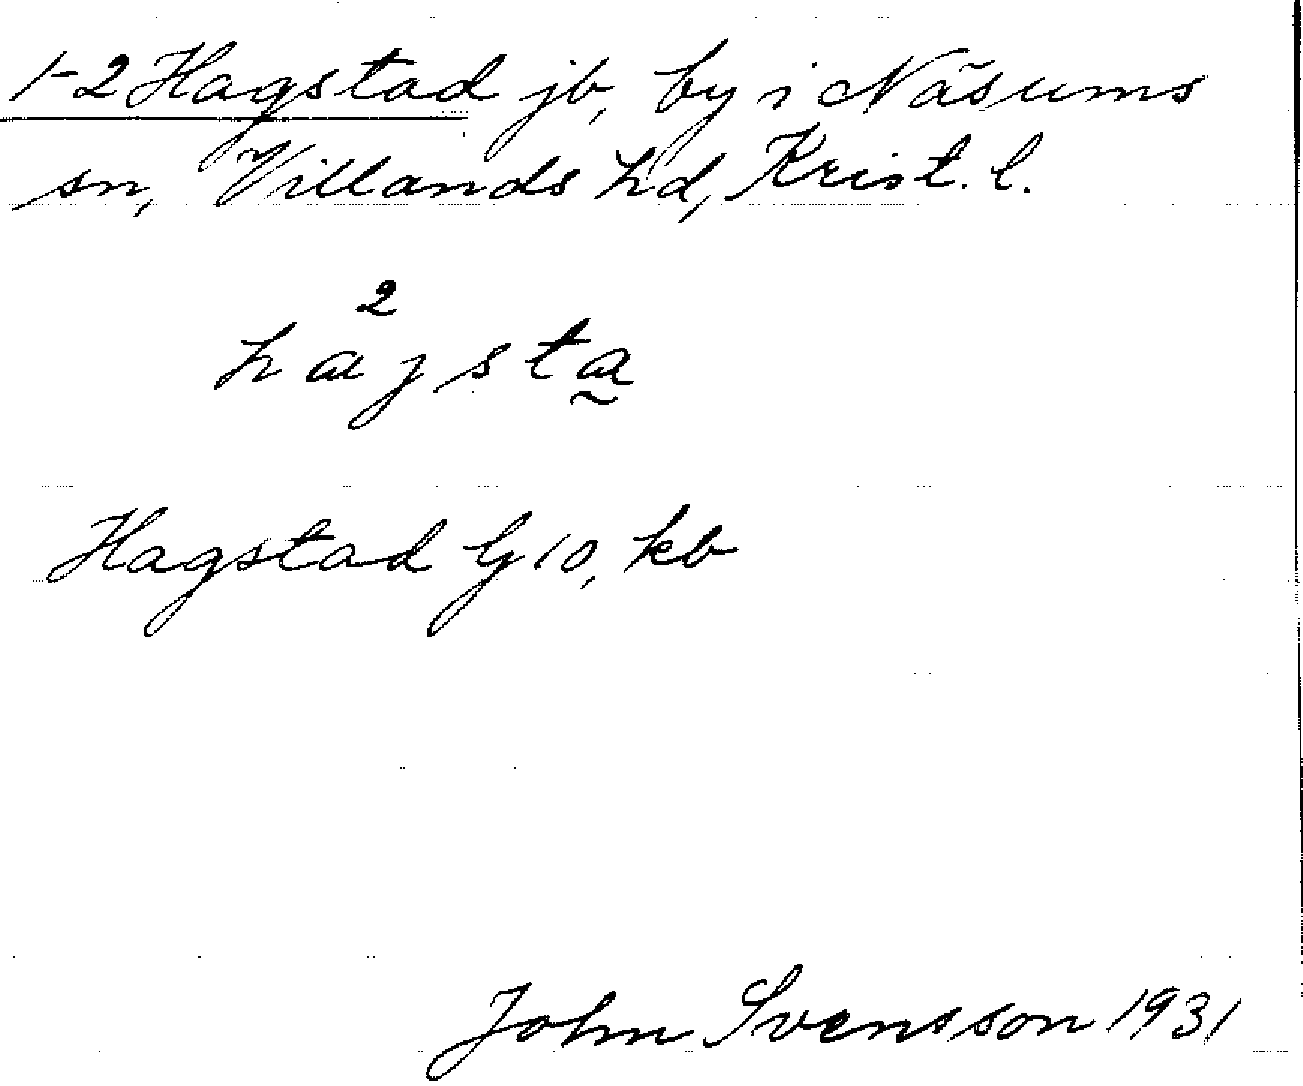 1-2 Hagstad jb, by i Näsums
sn, Villands hd, Krist. l.
2
hagsta
Hagstad G 10, kb
John Svensson 1931